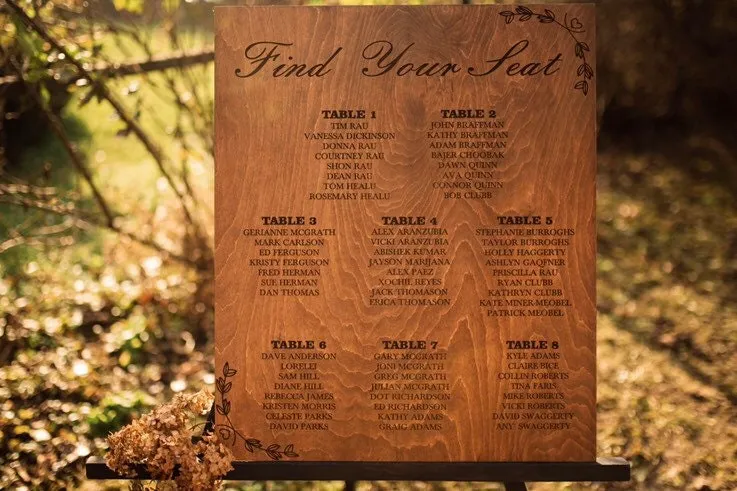 Find Your Seat
TABLE 1
TIM RAU
VANESSA DICKINSON
DONNA RAU
COURTNEY RAU
SHON RAU
DEAN RAU
TOM HEALU
ROSEMARY HEALU
TABLE 2
JOHN BRAFFMAN
KATHY BRAFFMAN
ADAM BRAFFMAN
BAJER CHOOBAK
DAWN QUINN
AVA QUINN
CONNOR QUINN
BOB CLUBB
TABLE 3
GERIANNE MCGRATH
MARK CARLSON
ED FERGUSON
KRISTY FERGUSON
FRED HERMAN
SUE HERMAN
DAN THOMAS
TABLE 4
ALEX ARANZUBIA
VICKI ARANZUBIA
ABISHEK KUMAR
JAYSON MARIJANA
ALEX PAEZ
XOCHIE REYES
JACK THOMASON
ERICA THOMASON
TABLE 5
STEPHANIE BURROGHS
TAYLOR BURROGHS
HOLLY HAGGERTY
ASHLYN
PRISCILLA RAU
RYAN CLUBB
KATHRYN CLUBB
KATE MINEK-MEOBEL
PATRICK MEOBEL
TABLE 6
DAVE ANDERSON
LORELEI
SAM HILL
DIANE HILL
REBECCA JAMES
KRISTEN MORRIS
CELESTE PARKS
DAVID PARKS
TABLE 7
GARY MCGRATH
JONI MCGRATH
GREG MCGRATH
JULIAN MCGRATH
DOT RICHARDSON
ED RICHARDSON
KATHY ADAMS
CRAIG ADAMS
TABLE 8
KYLE ADAMS
CLAIRE BICE
COLLIN ROBERTS
TINA FARIS
MIKE ROBERTS
VICKI ROBERTS
DAVID SWAGGERTY
ANY SWAGGERTY